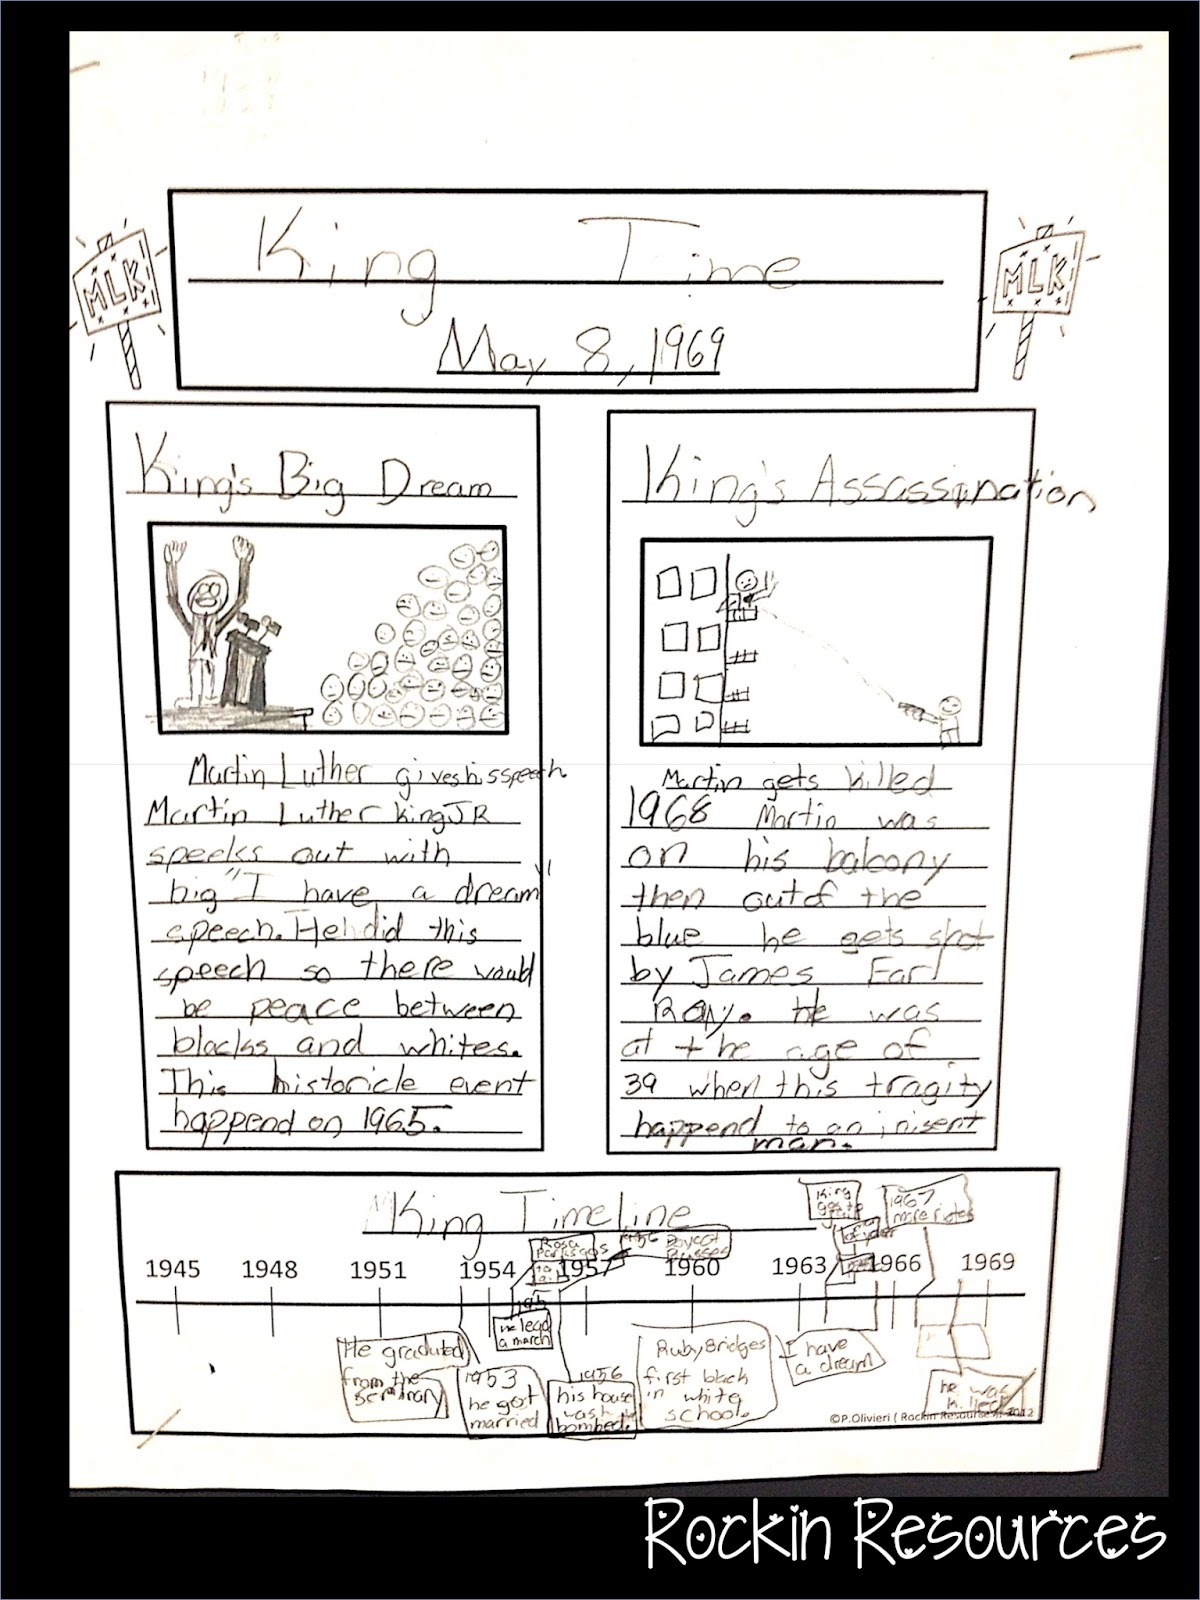 MLK
King Time
MLK
May 8, 1969
King's Big Dream
Martin Luther gives his speech
Martin Luther King JR
speeks out with
big "I have a dream"
speech. He did this
speech so there would
be peace between
blacks and whites.
This historicle event
happend on 1965.
King's Assassination
Martin gets killed
1968 Martin was
on his balcony
then out of the
blue he gets shot
by James Earl
Ray. He was
at the age of
39 when this tragity
happend to an inisent
man.
King Timeline
King
1967
more riotes
Rosa
Parks gos
to jail
1956 Boycot
Bussses
1945 1948 1951 1954 1957 1960 1963 1966 1969
He graduated
from the
seminary
1953
he got
married
He lead
a march
1956
his house
was
bombed.
Ruby Bridges
first black
in white
school.
I have
a dream
he was
killed
©P.Olivieri ( Rockin Resources) 2012
Rockin Resources